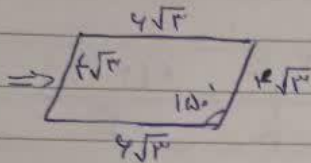 ۶√۳
⇒ ۴√۳ ۱۵۰° ۴√۳
۶√۳